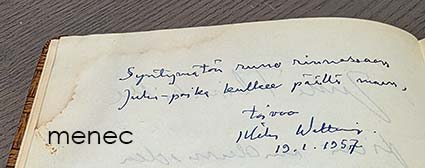 Syntymätön runo rinnassaan
Juha-poika kulkee päällä maan,
toivoo
19.1.1957.
menec